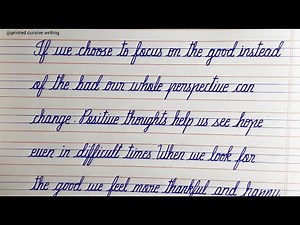 @printed cursive writing
If we choose to focus on the good instead
of the bad our whole perspective can
change. Positive thoughts help us see hope
even in difficult times When we look for
the good we feel more thankful and happy